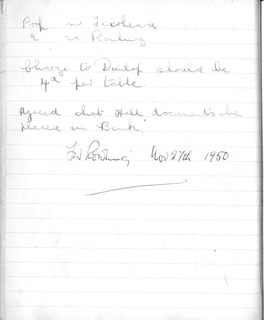 Prop Mr
2 Mr Rowling
Charge to Dunlop should be
4d per table
Agreed that Hall documents be
placed in Bank
Nov 27th 1950